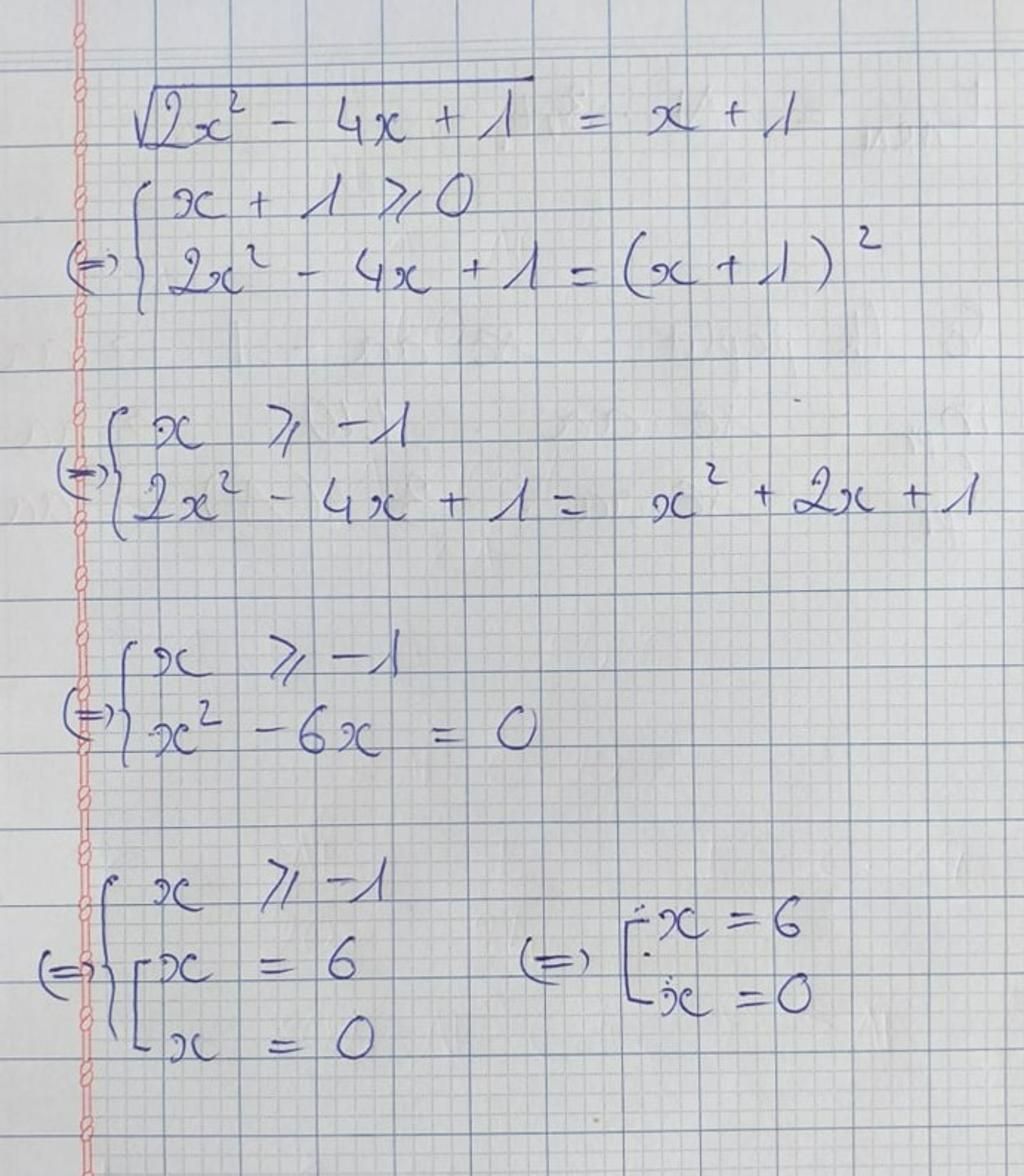 √(2x² - 4x + 1) = x + 1
⇔ { x + 1 ⩾ 0
2x² - 4x + 1 = (x + 1)²
⇔ { x ⩾ -1
2x² - 4x + 1 = x² + 2x + 1
⇔ { x ⩾ -1
x² - 6x = 0
⇔ { x ⩾ -1
[ x = 6
x = 0
⇔ [ x = 6
x = 0